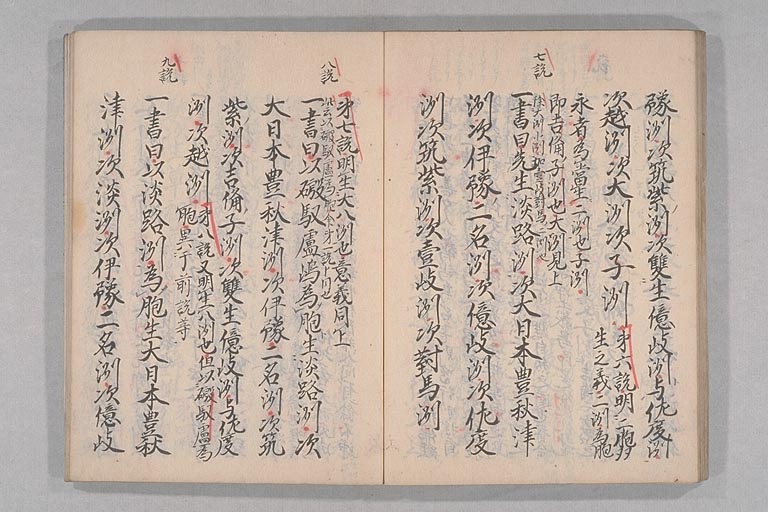 豫洲次筑紫洲次雙生億岐洲与佐度洲
次越洲次大洲次子洲
第六說明二胞
生之義二洲為胞
永者為雙生二洲也子洲
即吉備子洲也大洲見上
七說
一書曰先生淡路洲次大日本豊秋津
洲次伊豫二名洲次億岐洲次佐度
洲次筑紫洲次壹岐洲次對馬洲
第七說明生大八洲也意義同上
八說
一書曰以磤馭盧嶋為胞生淡路洲次
大日本豊秋津洲次伊豫二名洲次筑
紫洲次吉備子洲次雙生億岐洲与佐度
洲次越洲
第八說又明生八洲也但以磤馭盧為
胞異于前說等
九說
一書曰以淡路洲為胞生大日本豊秋
津洲次淡洲次伊豫二名洲次億岐